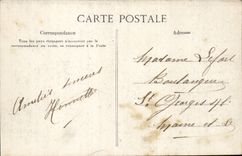 CARTE POSTALE
Correspondance
Adresse
Tous les pays étrangers n'acceptent pas la
correspondance au verso, se renseigner à la Poste
Madame
Boulangère
St Georges
Maine et L
Amitiés sincères
Henriette